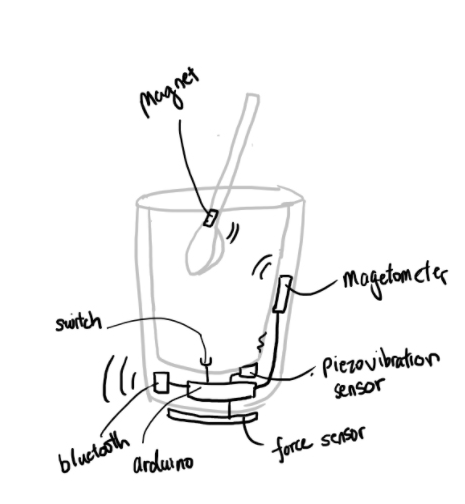 magnet
magetometer
switch
piezovibration
sensor
bluetooth
arduino
force sensor